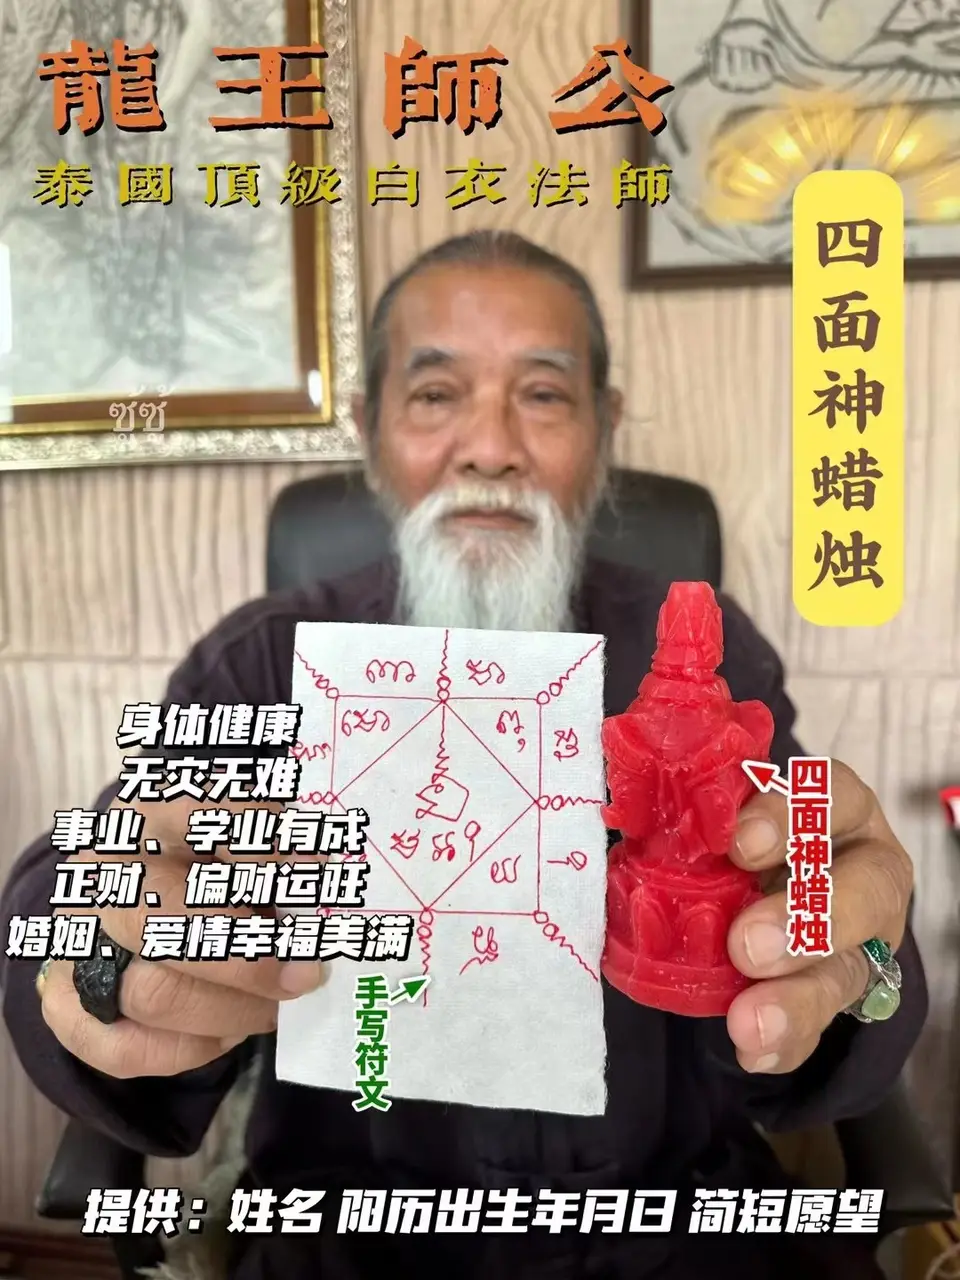 龍王師公
泰國頂級白衣法師
四面神蜡烛
ซูซู้
身体健康
无灾无难
事业、学业有成
正财、偏财运旺
婚姻、爱情幸福美满
四面神蜡烛
手写符文
提供：姓名 阳历出生年月日 简短愿望